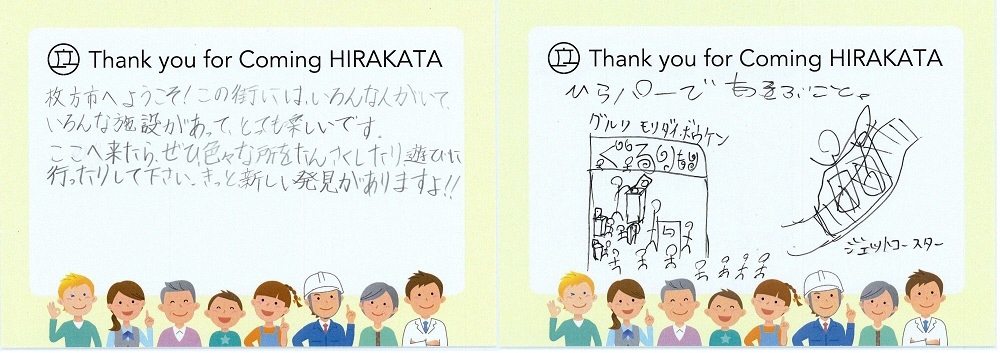 Thank you for Coming HIRAKATA
枚方市へようこそ!この街には、いろんな人がいて、
いろんな施設があって、とても楽しいです。
ここへ来たら、ぜひ色々な所をたんさくしたり遊びに
行ったりして下さい。きっと新しい発見がありますよ!!
Thank you for Coming HIRAKATA
ひらパーで あそぶこと。
グルリ モリダイボウケン
ジェットコースター